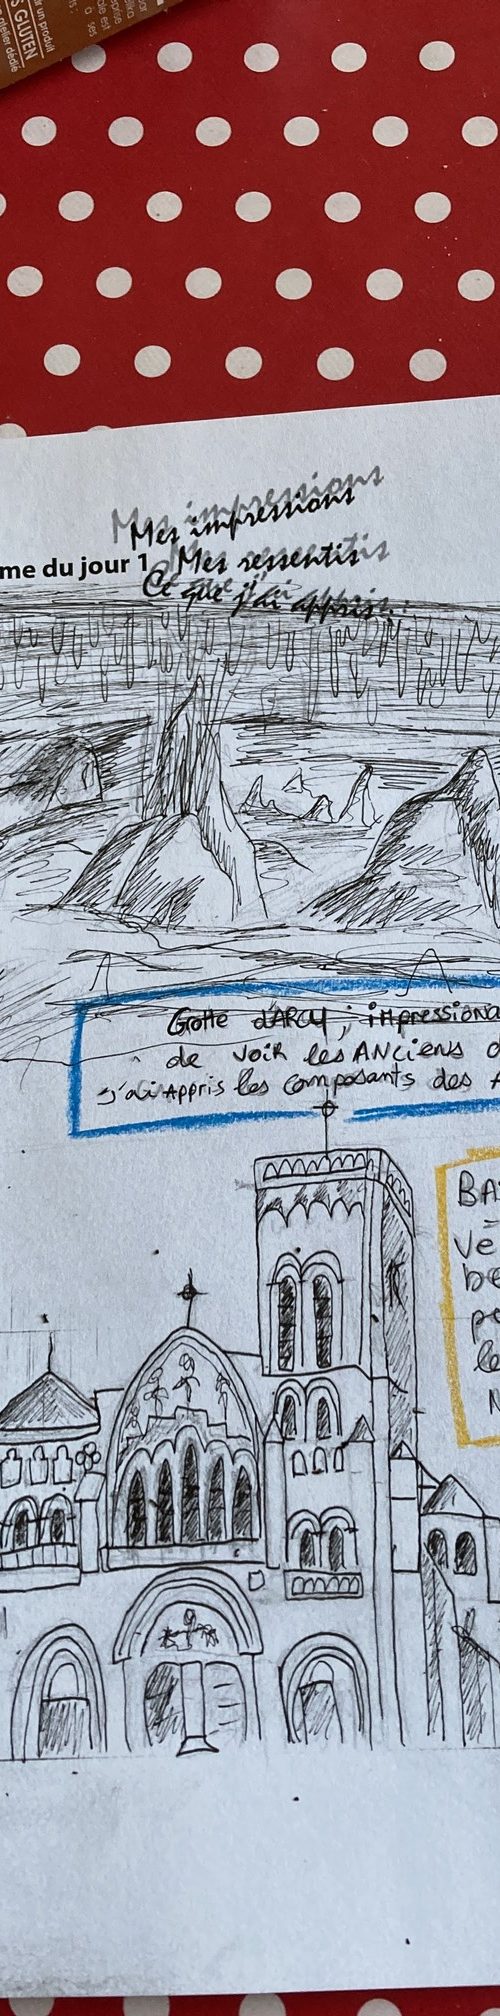 S GLUTEN
ir un produit
atelier dédié
Mes impressions
me du jour 1 Mes ressentis
Ce que j'ai appris...
Grotte d'ARCY ; impressiona
de voir les ANciens d
j'ai Appris les composants des A
BAS
Ve
be
pe
le
N